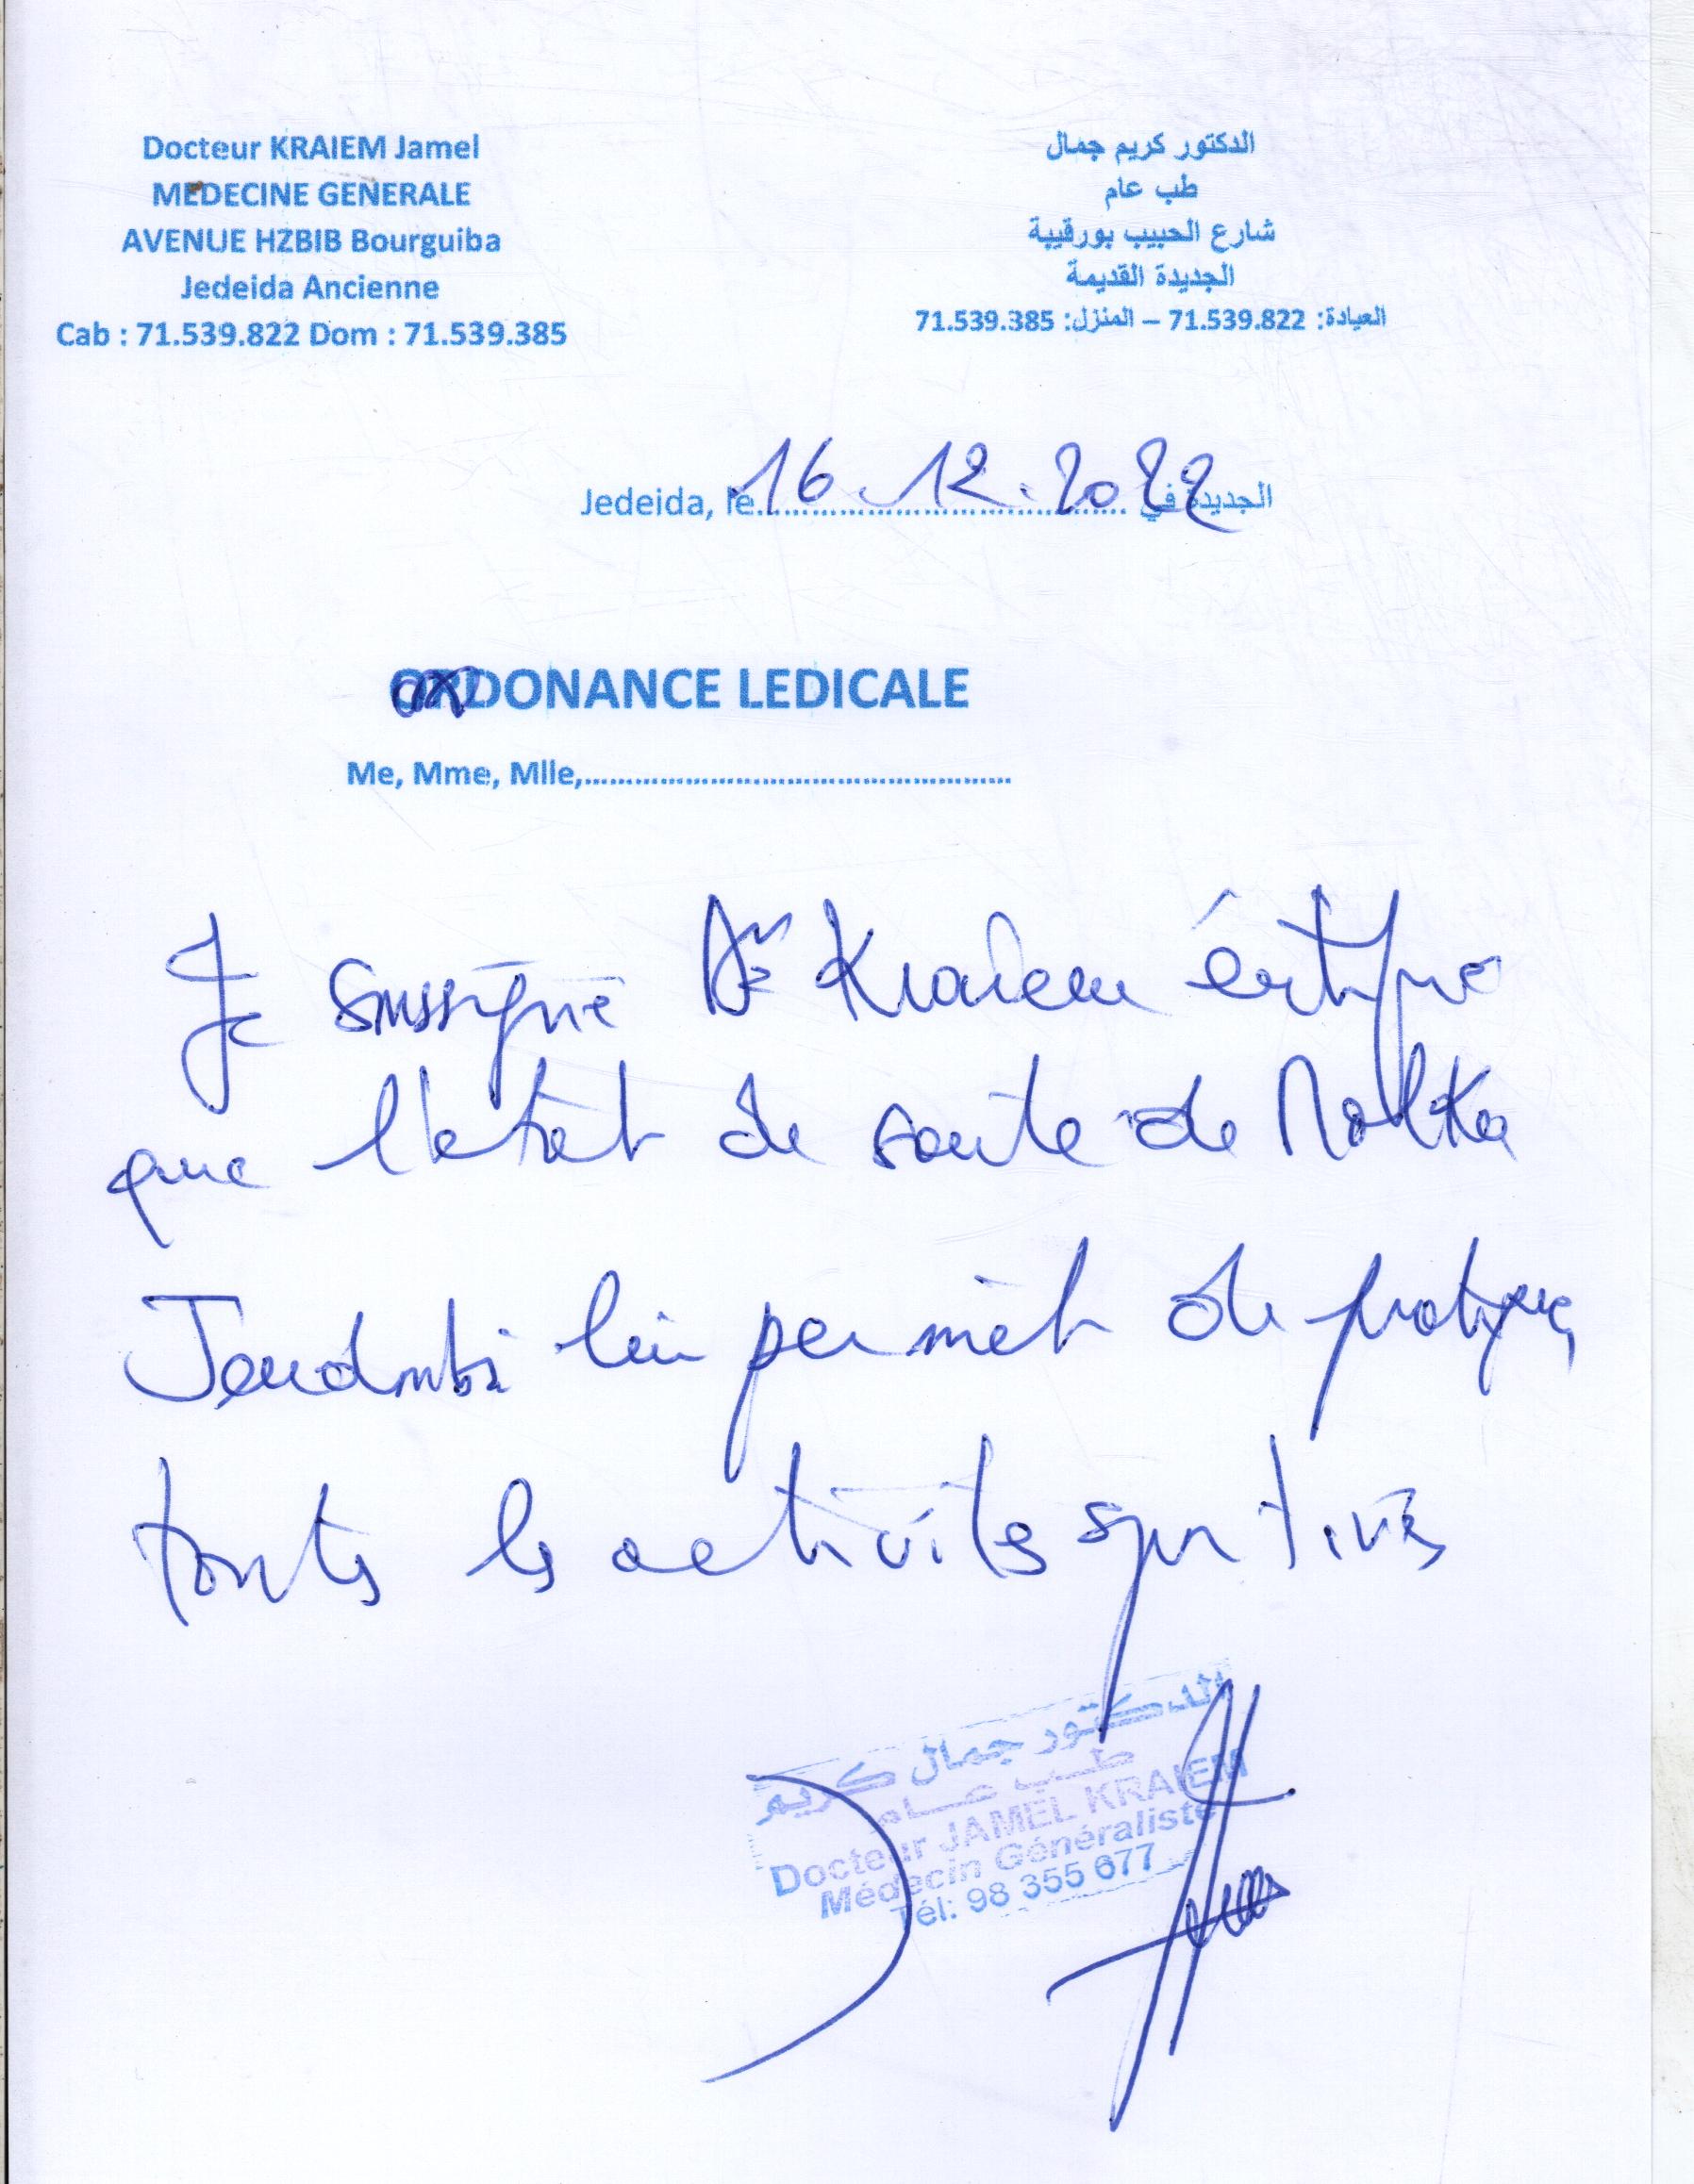 Docteur KRAIEM Jamel
MEDECINE GENERALE
AVENUE HZBIB Bourguiba
Jedeida Ancienne
Cab : 71.539.822 Dom : 71.539.385
الدكتور كريم جمال
طب عام
شارع الحبيب بورقيبة
الجديدة القديمة
العيادة: 71.539.822 – المنزل: 71.539.385
Jedeida, le 16.12.2022 الجديدة في
ORDONANCE LEDICALE
Me, Mme, Mlle,
Je soussigné Dr Kraiem certifie
que l'état de santé de Malka
Jendoubi lui permet de pratiquer
toutes les activités sportives
الدكتور جمال كريم
طب عام
Docteur JAMEL KRAIEM
Médecin Généraliste
Tél: 98 355 677